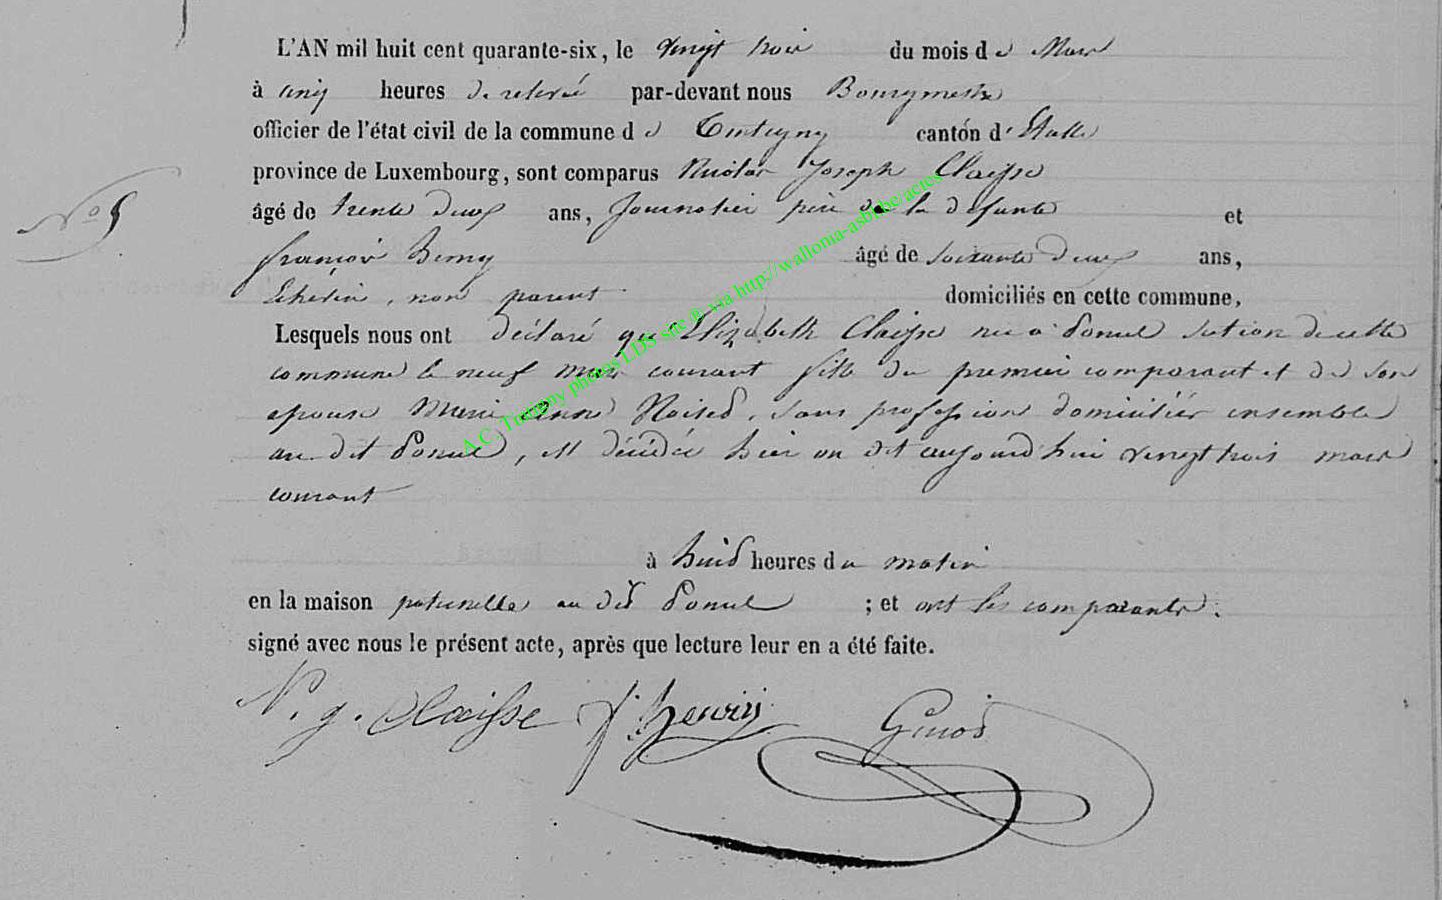 L'AN mil huit cent quarante-six, le vingt trois du mois de Mars
à cinq heures de relevée par-devant nous Bourgmestre
officier de l'état civil de la commune de Tintigny canton d'Etalle
province de Luxembourg, sont comparus Nicolas Joseph Claisse
N° 5
âgé de trente deux ans, Journalier père de la défunte et
françois henry âgé de soixante deux ans,
Echevin, non parent domiciliés en cette commune,
Lesquels nous ont déclaré qu'Elizabeth Claisse née à Poncel section de cette
commune le neuf mars courant fille du premier comparant et de son
epouse Marie Anne, sans profession domiciliés ensemble
au dit Poncel, est décédée hier on dit aujourd'hui vingt trois mars
courant
à huit heures du matin
en la maison paternelle au dit Poncel ; et ont les comparants.
signé avec nous le présent acte, après que lecture leur en a été faite.
N. j. Claisse f. henry
A.C. Tintigny photos LDS site ® via http://wallonia-asbl.be/actes